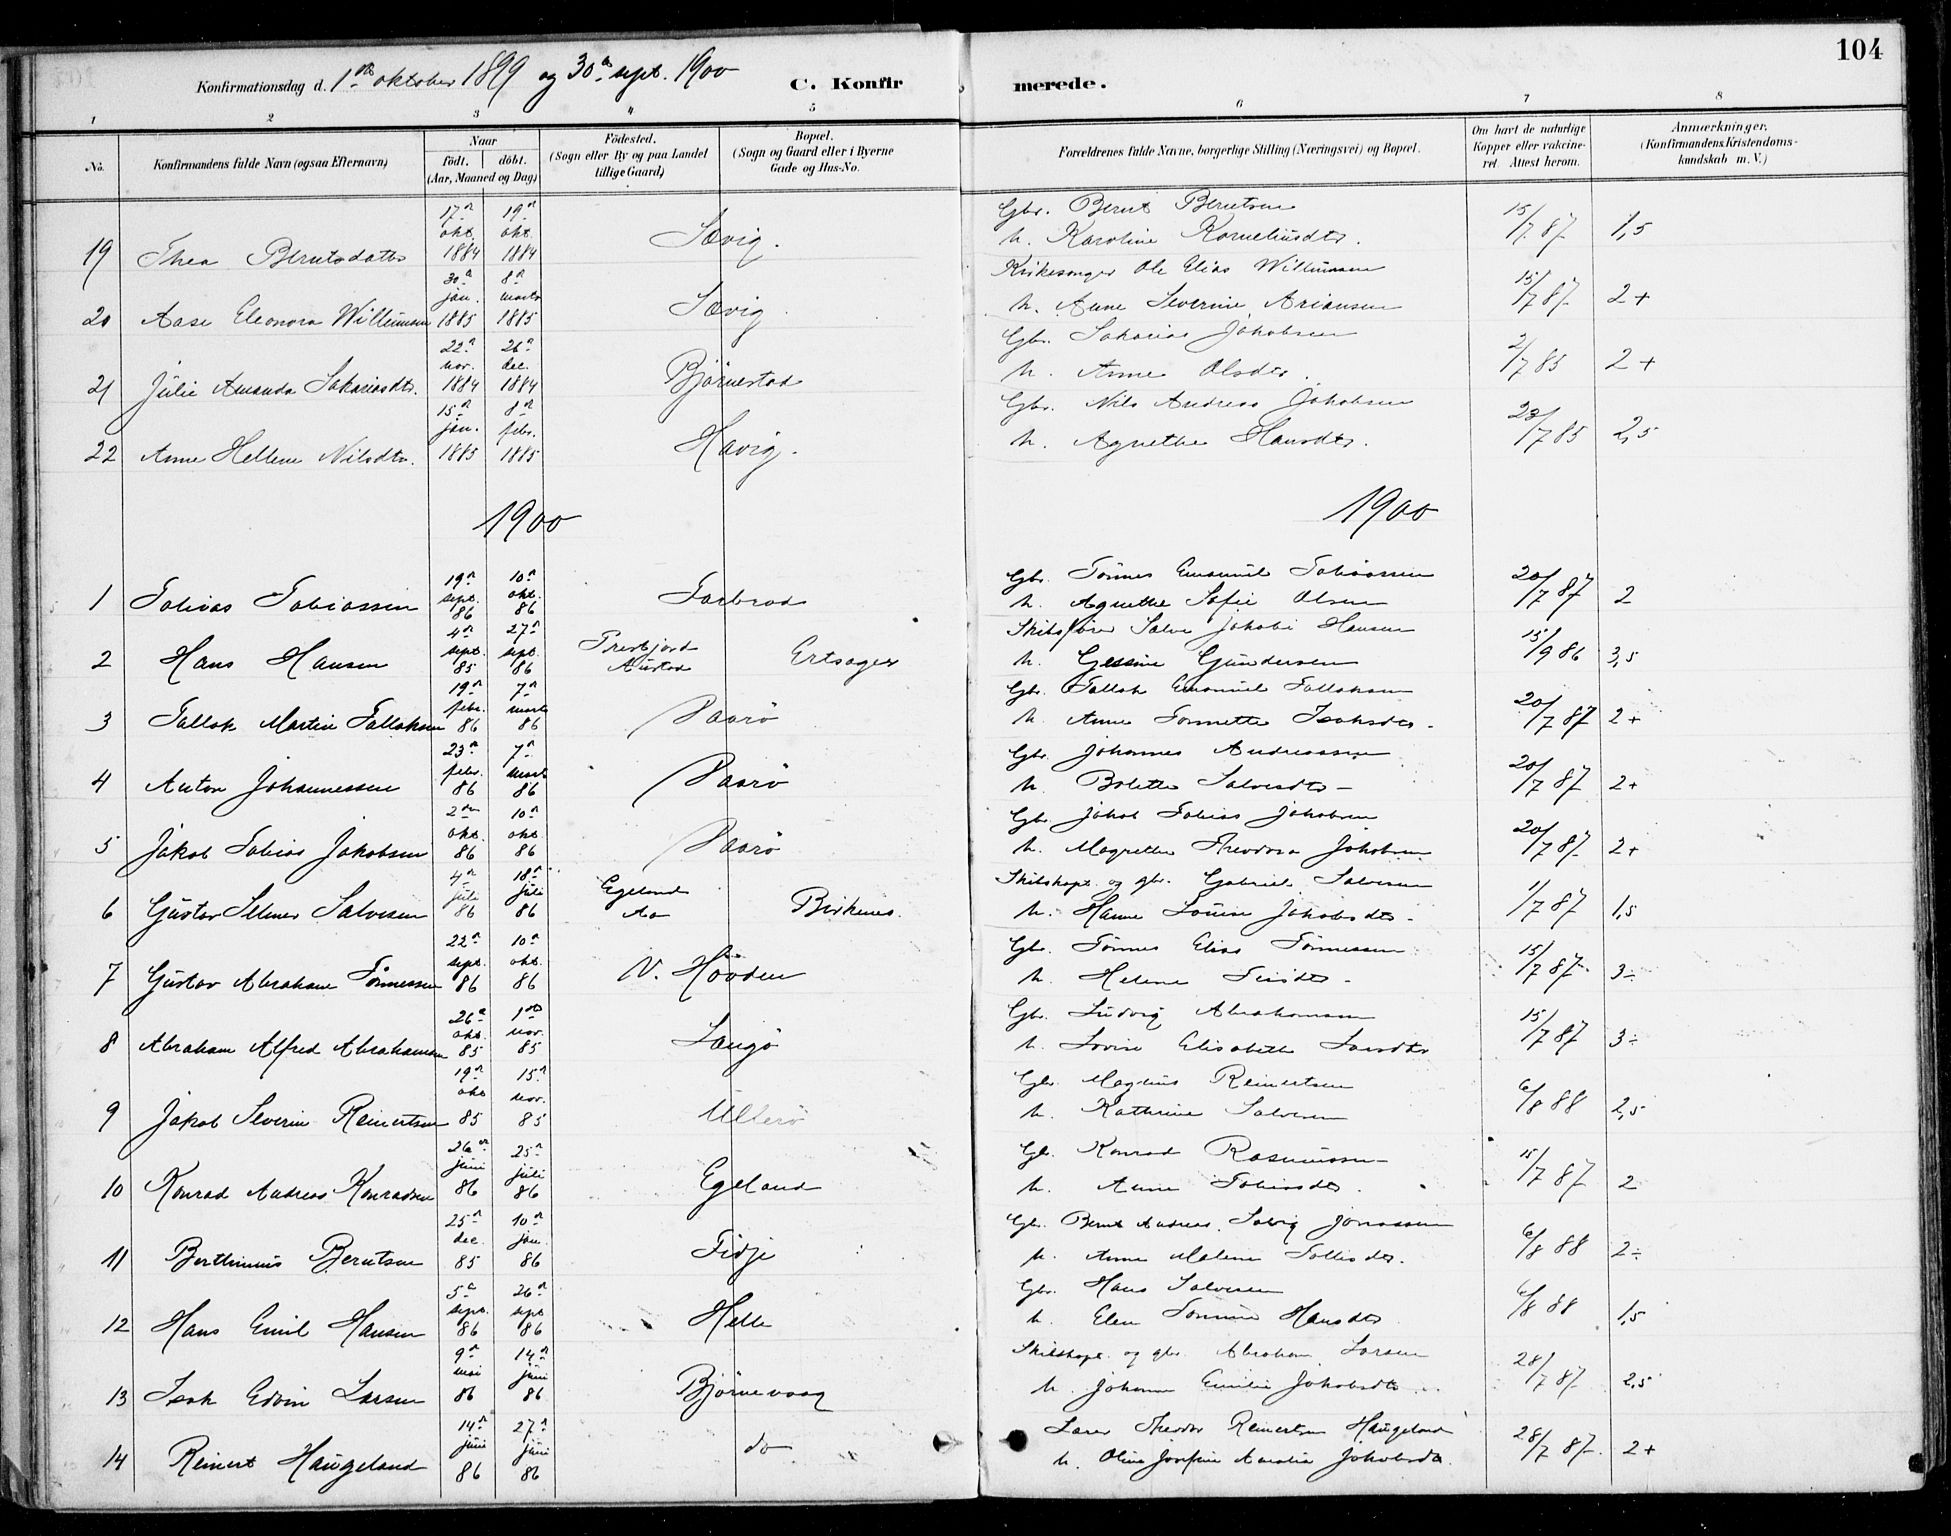 104
Konfirmationsdag d. 1ste oktober 1899 og 30te sept. 1900
C. Konfirmerede.
1 2 3 4 5 6 7 8
No.
Konfirmandens fulde Navn (ogsaa Efternavn)
Naar
födt. döbt.
(Aar, Maaned og Dag)
Födested.
(Sogn eller By og paa Landet
tillige Gaard)
Bopæl.
(Sogn og Gaard eller i Byerne
Gade og Hus-No.
Forældrenes fulde Navne, borgerlige Stilling (Næringsvei) og Bopæl.
Om havt de naturlige
Kopper eller vakcine-
ret. Attest herom.
Anmærkninger.
(Konfirmandens Kristendoms-
kundskab m. V.)
19 Thea Berntsdatter 17de okt. 1884 19de okt. 1884 Sævig. Gbr. Bernt Berntsen
h. Karoline Korneliusdtr. 15/7 87 1,5
20 Aase Eleonora Willumsen 30te jan. 1885 8de marts 1885 Sævig. Kirkesanger Ole Elias Willumsen
h. Anne Severine Ariansen 15/7 87 2+
21 Julie Amanda Sakariasdtr. 22de nov. 1884 26de dec. 1884 Bjørnestad Gbr. Sakarias Jakobsen
h. Anne Olsdtr. 2/7 85 2+
22 Anne Hellene Nilsdtr. 15de jan. 1885 8de febr. 1885 Havig. Gbr. Nils Andreas Jakobsen
h. Agnethe Hansdtr. 23/7 85 2,5
1900 1900
1 Tobias Tobiassen 19de sept. 86 10de okt. 86 Farbrod Gbr. Tönnes Emanuel Tobiassen
h. Agnethe Sofie Olsen 20/7 87 2
2 Hans Hansen 4de sept. 85 27de sept. 86 Austad Ertsager Skibsfører Salve Jakobi Hansen
h. Gessine Gundersen 15/9 86 3,5
3 Tallak Martin Tallaksen 19de febr. 86 7de marts 86 Paarø Gbr. Tallak Emanuel Tallaksen
h. Anne Tonnette Isaksdtr. 20/7 87 2+
4 Anton Johannessen 23de febr. 86 7de marts 86 Paarø Gbr. Johannes Andreassen
h. Bolette Salvesdtr 20/7 87 2+
5 Jakob Tobias Jakobsen 2den okt. 86 10de okt. 86 Paarø Gbr. Jakob Tobias Jakobsen
h. Magrethe Theodora Jakobsen 20/7 87 2+
6 Gustav Selmer Salvesen 4de juli 86 18de juli 86 Egeland Aa Birkenes. Skibskapt. og gbr. Gabriel Salvesen
h. Hanne Louise Jakobsdtr. 1/7 87 1,5
7 Gustav Abraham Tönnessen 22de sept. 86 10de okt. 86 V. Hövden Gbr. Tönnes Elias Tönnessen
h. Helene 15/7 87 3÷
8 Abraham Alfred Abrahamsen 26de okt. 85 1ste nov. 85 Langö Gbr. Ludvig Abrahamsen
h. Lovise Elisabeth Larsdtr 15/7 87 3÷
9 Jakob Severin Reinertsen 19de okt 85 15de nov. 85 Ullerö Gbr. Magnus Reinertsen
h. Kathrine Salvesen 6/8 88 2,5
10 Konrad Andreas Konradsen 26de juni 86 25de juli 86 Egeland Gb. Konrad Rasmussen
h. Anne Tobiasdtr. 15/7 87 2
11 Berthinius Berntsen 25de dec. 85 10de jan. 86 Fidje Gb. Bernt Andreas Solvig Jonassen
h. Anne Malene Tollisdtr. 6/8 88 2÷
12 Hans Emil Hansen 5te sept. 86 26de sept 86 Helle Gbr. Hans Salvesen
h. Elen Tomine Hansdtr 6/8 88 1,5
13 Isak Edvin Larsen 9de mai 86 14de juni 86 Bjørnevaag Skibskapt. og gbr. Abraham Larsen
h. Johanne Emilie Jakobsdtr. 28/7 87 2,5
14 Reinert Haugeland 14de juni 86 27de juni 86 do Lærer Theodor Reinertsen Haugeland
h. Oline Josefine Amalia Jakobsdtr. 28/7 87. 2+